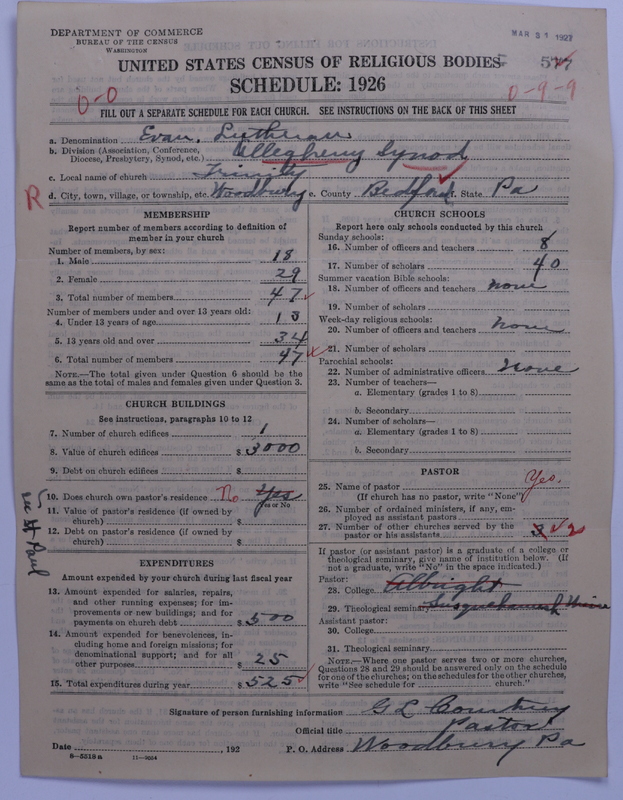 DEPARTMENT OF COMMERCE
BUREAU OF THE CENSUS
WASHINGTON
MAR 31 1927
UNITED STATES CENSUS OF RELIGIOUS BODIES
SCHEDULE: 1926
0-0
0-9-9
FILL OUT A SEPARATE SCHEDULE FOR EACH CHURCH. SEE INSTRUCTIONS ON THE BACK OF THIS SHEET
a. Denomination Evan. Lutheran
b. Division (Association, Conference, Diocese, Presbytery, Synod, etc.) Allegheny Synod
c. Local name of church Trinity
R
d. City, town, village, or township, etc. Woodbury e. County Bedford f. State Pa
MEMBERSHIP
Report number of members according to definition of
member in your church
Number of members, by sex:
1. Male 18
2. Female 29
3. Total number of members 47
Number of members under and over 13 years old:
4. Under 13 years of age 13
5. 13 years old and over 34
6. Total number of members 47
NOTE.—The total given under Question 6 should be the
same as the total of males and females given under Question 3.
CHURCH BUILDINGS
See instructions, paragraphs 10 to 12
7. Number of church edifices 1
8. Value of church edifices $ 3000
9. Debt on church edifices $
10. Does church own pastor's residence No Yes
Yes or No
11. Value of pastor's residence (if owned by
church) $
12. Debt on pastor's residence (if owned by
church) $
see St Paul
EXPENDITURES
Amount expended by your church during last fiscal year
13. Amount expended for salaries, repairs,
and other running expenses; for im-
provements or new buildings; and for
payments on church debt $ 500
14. Amount expended for benevolences, in-
cluding home and foreign missions; for
denominational support; and for all
other purposes $ 25
15. Total expenditures during year $ 525
CHURCH SCHOOLS
Report here only schools conducted by this church
Sunday schools:
16. Number of officers and teachers 8
17. Number of scholars 40
Summer vacation Bible schools:
18. Number of officers and teachers none
19. Number of scholars
Week-day religious schools:
20. Number of officers and teachers none
21. Number of scholars
Parochial schools:
22. Number of administrative officers none
23. Number of teachers—
a. Elementary (grades 1 to 8)
b. Secondary
24. Number of scholars—
a. Elementary (grades 1 to 8)
b. Secondary
PASTOR
25. Name of pastor Yes.
(If church has no pastor, write "None")
26. Number of ordained ministers, if any, em-
ployed as assistant pastors
27. Number of other churches served by the
pastor or his assistants 3 2
If pastor (or assistant pastor) is a graduate of a college or
theological seminary, give name of institution below. (If
not a graduate, write "No" in the space indicated.)
Pastor:
28. College Albright
29. Theological seminary Susquehanna Univ
Assistant pastor:
30. College
31. Theological seminary
NOTE.—Where one pastor serves two or more churches,
Questions 28 and 29 should be answered only on the schedule
for one of the churches; on the schedules for the other churches,
write "See schedule for church."
Signature of person furnishing information G L Courtney
Official title Pastor
Date , 192 P. O. Address Woodbury Pa
8-5518a 11-9034